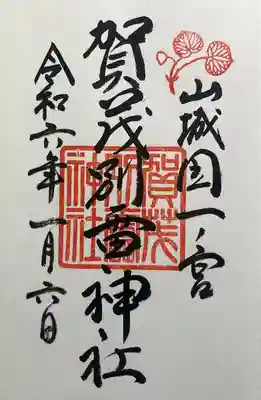 山城国一ノ宮
賀茂別雷神社
令和六年一月六日
賀茂
別雷
神社